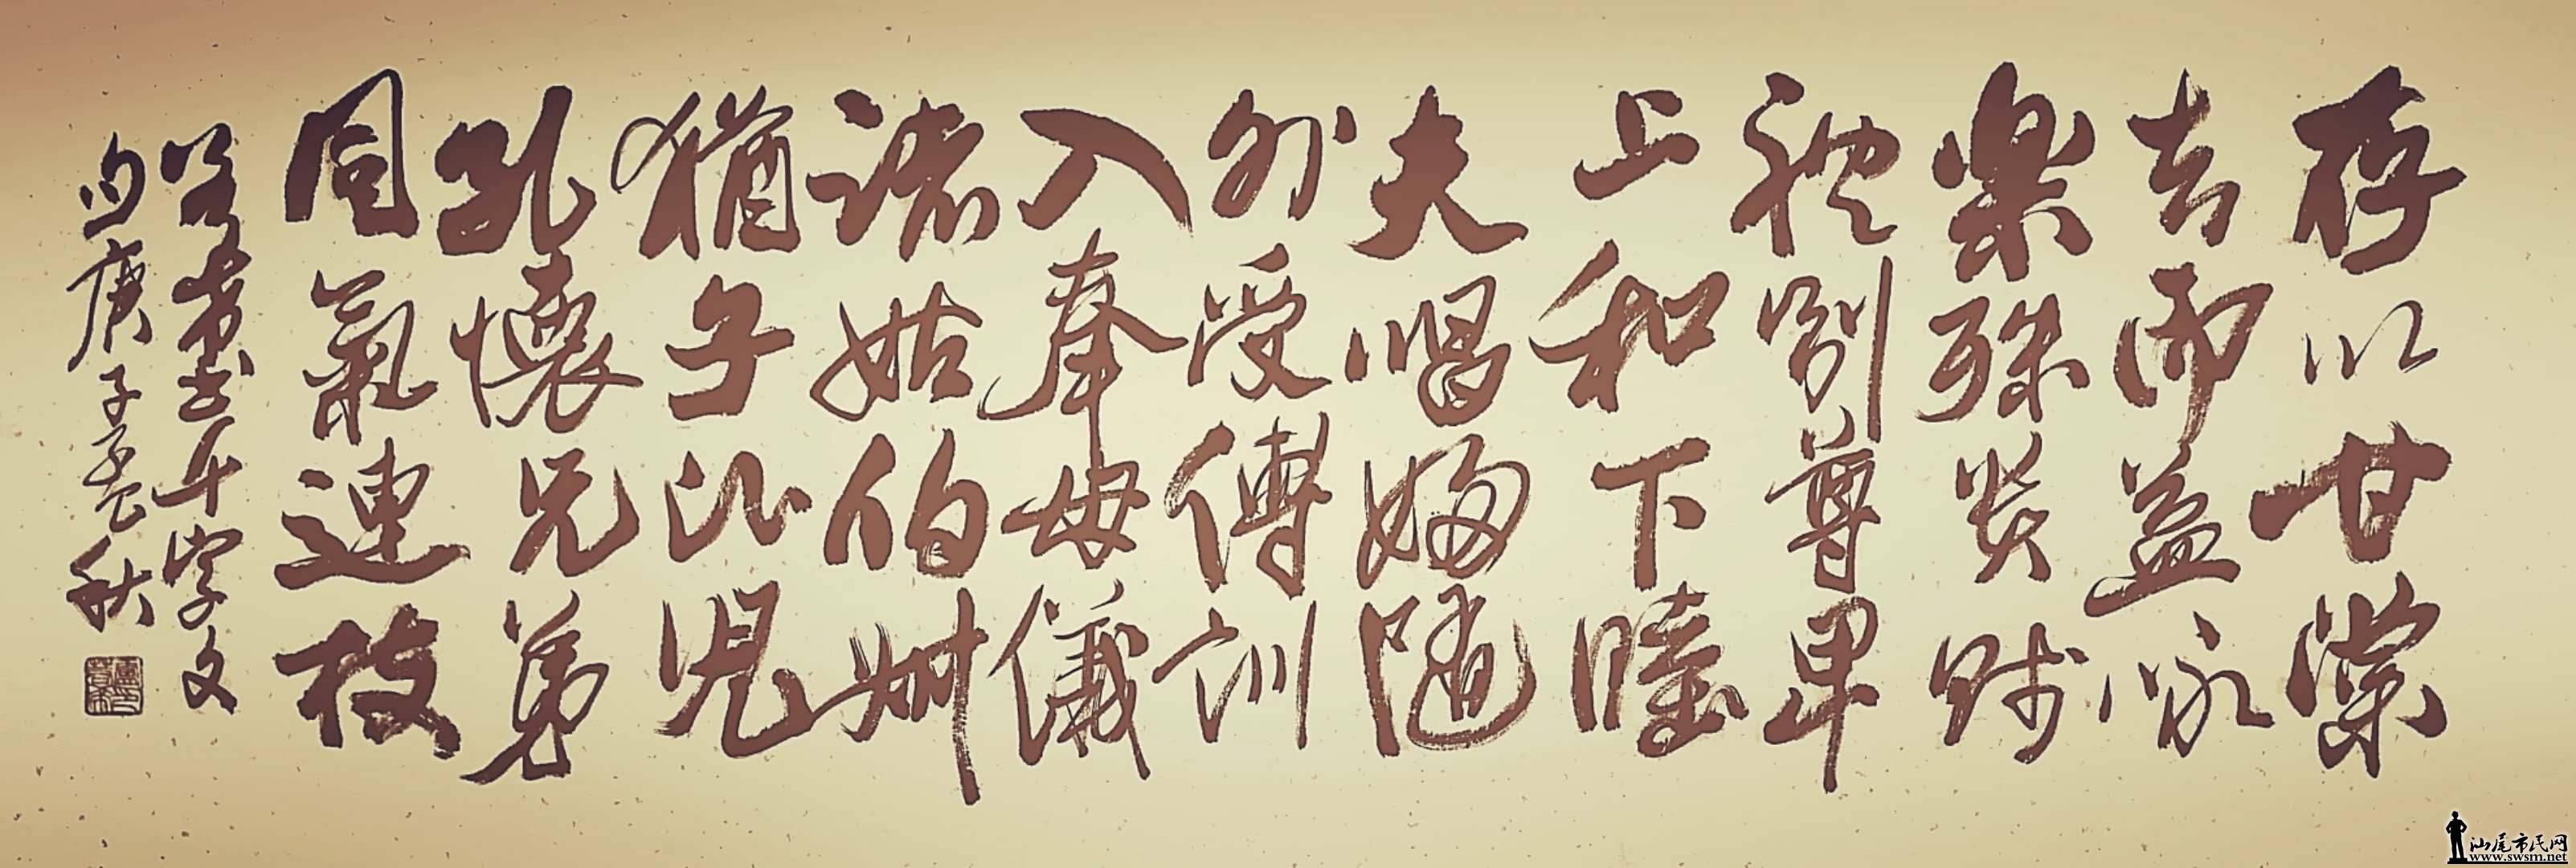 存以甘棠
去而益咏
樂殊貴賤
禮別尊卑
上和下睦
夫唱婦隨
外受傅訓
入奉母儀
諸姑伯叔
猶子比兒
孔懷兄弟
同氣連枝
書千字文
句庚子孟秋
汕尾市民网
www.swsm.net